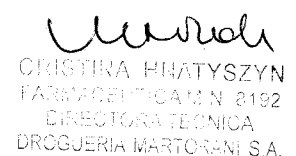 CRISTINA HNATYSZYN
FARMACEUTICA M.N. 8192
DIRECTORA TECNICA
DROGUERIA MARTORANI S.A.